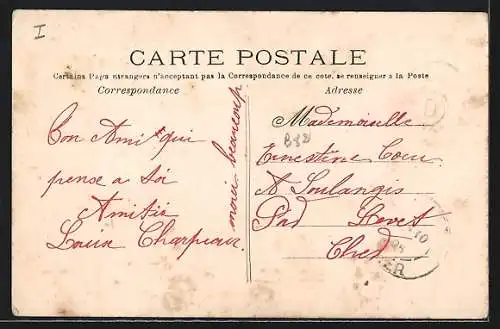 I
CARTE POSTALE
Certains Pays étrangers n'acceptant pas la Correspondance de ce coté, se renseigner à la Poste
Correspondance
Adresse
Ton Amit qui
pense a toi
Amitié
Louis Charpeaux
merci beaucoup
Mademoiselle
Ernestine
A Soulangis
Par Levet
Cher